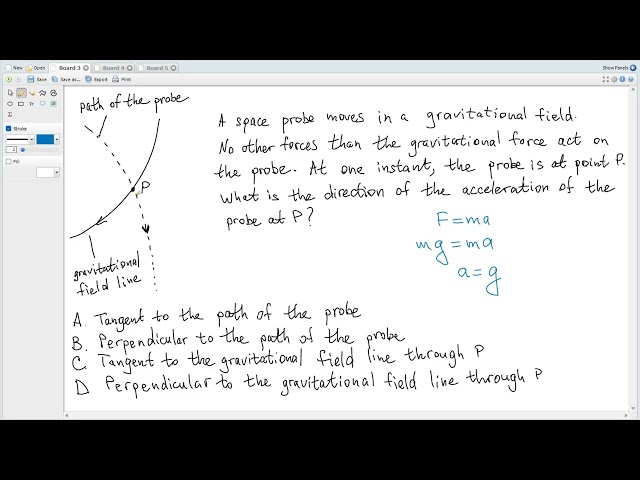 New
Open
Board 3
Board 4
Board 5
Show Panels
Save
Save as...
Export
Print
Stroke
2
Fill
path of the probe
P
gravitational
field line
A space probe moves in a gravitational field.
No other forces than the gravitational force act on
the probe. At one instant, the probe is at point P.
What is the direction of the acceleration of the
probe at P?
F = ma
mg = ma
a = g
A. Tangent to the path of the probe
B. Perpendicular to the path of the probe
C. Tangent to the gravitational field line through P
D Perpendicular to the gravitational field line through P